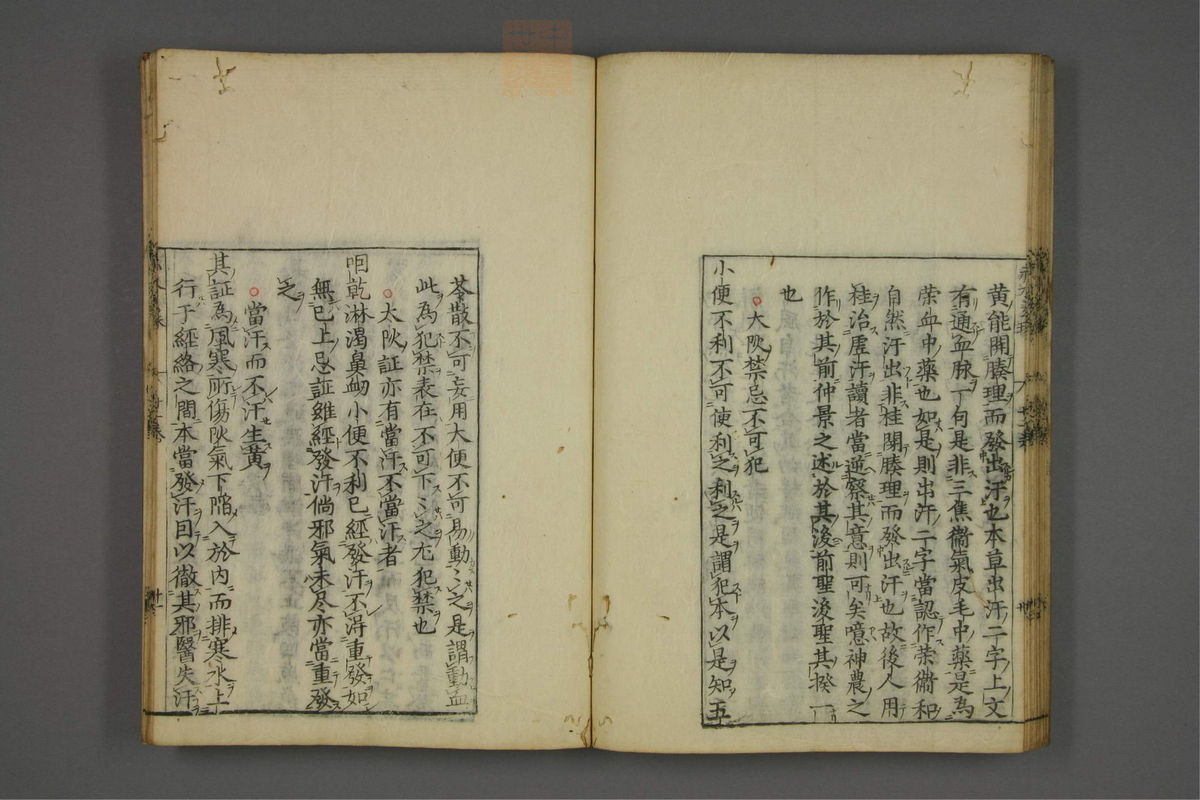 黄能開腠理而發出汗也本草出汗二字上文
有通血脉一句是非三焦衞氣皮毛中藥是為
榮血中藥也如是則出汗二字當認作榮衞和
自然汗出非桂開腠理而發出汗也故後人用
桂治虛汗讀者當逆察其意則可矣噫神農之
作於其前仲景之述於其後前聖後聖其揆一
也
大陽禁忌不可犯
小便不利不可使利之利之是謂犯本以是知五
苓散不可妄用大便不可易動〻之是謂動血
此為犯禁表在不可下〻之尤犯禁也
太陽証亦有當汗不當汗者
咽乾淋渇鼻衂小便不利已經發汗不得重發如
無已上忌証雖經發汗倘邪氣未尽亦當重發
之
當汗而不汗生黄
其証為風寒所傷陽氣下陷入於内而排寒水上
行于經絡之間本當發汗因以徹其邪醫失汗